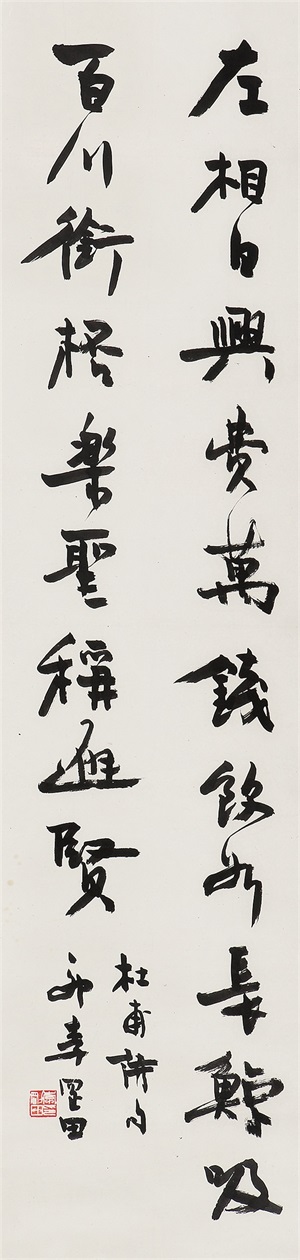 左相日興費萬錢飲如長鯨吸
百川銜桮樂聖稱避賢
杜甫詩句